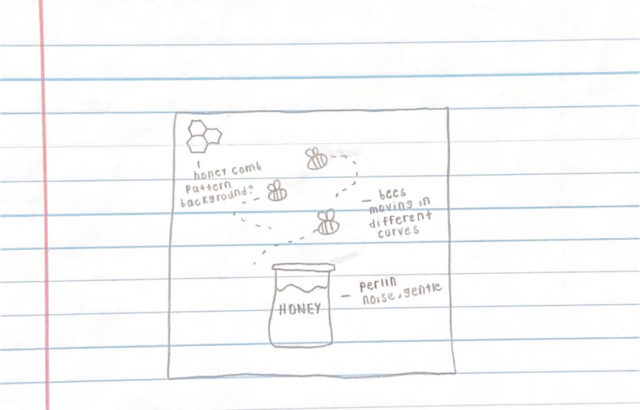 honey comb
pattern
background?
bees
moving in
different
curves
perlin
noise, gentle
HONEY